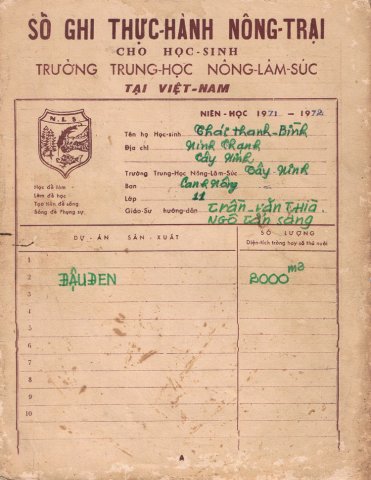 SỔ GHI THỰC-HÀNH NÔNG-TRẠI
CHO HỌC-SINH
TRƯỜNG TRUNG-HỌC NÔNG-LÂM-SÚC
TẠI VIỆT-NAM
N.L.S
Học để làm
Làm để học
Tạo tiến để sống
Sống để Phụng sự
NIÊN-HỌC 1971 – 1972
Tên họ Học-sinh Thái thanh-Bình
Địa chỉ Ninh Thạnh
Tây Ninh
Trường Trung-Học Nông-Lâm-Súc Tây-Ninh
Ban Canh Nông
Lớp 11
Giáo-Sư hướng-dẫn Trần-Văn Thìa
NGÔ Tấn Sáng
DỰ-ÁN SẢN-XUẤT
SỐ LƯỢNG
Diện-tích trồng hay số thú nuôi
1
2 ĐẬU ĐEN 2000 m2
3
4
5
6
7
8
9
10
A